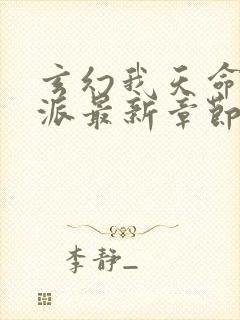 玄幻我天命
派最新章节
李静_